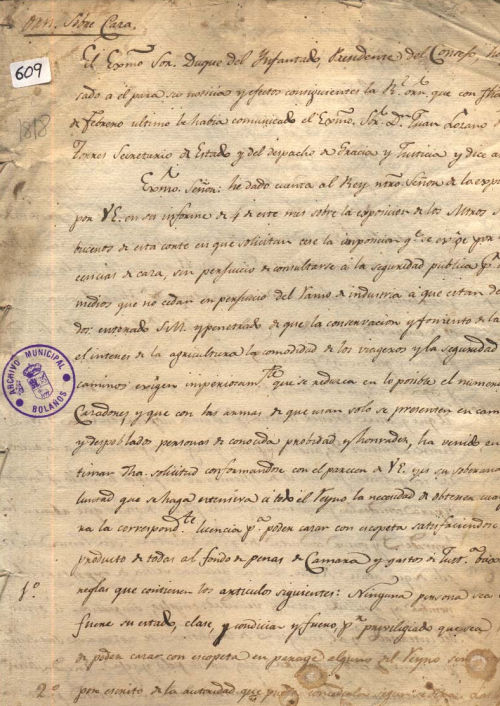 Orn. Sobre Caza.
609
1818
El Exmo. Sor. Duque del Ynfantado, Presidente del Consejo, ha
sado a el para su noticia y efectos consiguientes la Rl. orn. que con fha
de febrero ultimo le habia comunicado el Exmo. Sor. Dn. Juan Lozano de
Torres Secretario de Estado y del despacho de Gracia y Justicia y dice a
Exmo. Señor: he dado cuenta al Rey ntro. Señor de la expo
por VE. en su informe de 4 de este mes sobre la exposicion de los Mtros.
buceros de esta corte en que solicitan cese la imposicion qe. se exige por
cencias de caza, sin perjuicio de consultarse á la seguridad publica pr.
medios que no cedan en perjuicio del ramo de industria á que estan de
dos: enterado S.M. y penetrado de que la conservacion y fomento de la
el interes de la agricultura la comodidad de los viageros y la seguridad
caminos exigen imperiosamte. que se reduzca en lo posible el numero
Cazadores, y que con las armas de que usan solo se presenten en cam
y despoblados personas de conocida probidad y honradez, ha venido en
timar dha. solicitud conformandose con el parecer de VE. y es su soberana
luntad que se haga extensiva a todo el Reyno la necesidad de obtener
ra la correspondte. licencia pa. poder cazar con escopeta satisfaciendose
producto de todas al fondo de penas de Camara y gastos de Just.a bajo
reglas que contienen los articulos siguientes: Ninguna persona sea
1º.
fuere su estado, clase, y condicion y fuero, pr. privilegiado que sea
de poder cazar con escopeta en parage alguno del Reyno sin
2º
por escrito de la autoridad que pueda concederla
ARCHIVO MUNICIPAL
BOLAÑOS